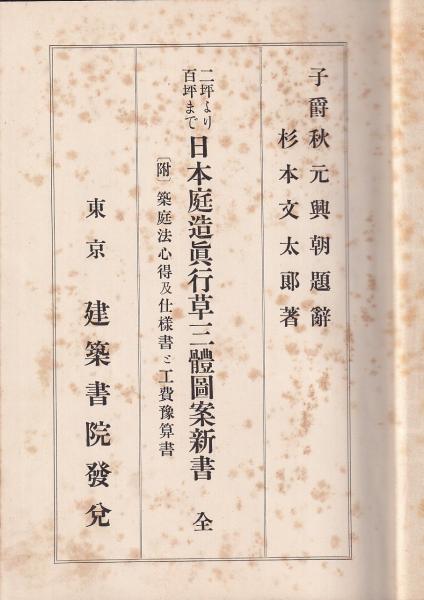 子爵秋元興朝題辭
杉本文太郎著
二坪より
百坪まで
日本庭造眞行草三體圖案新書 全
〔附〕築庭法心得及仕様書と工費豫算書
東京 建築書院發兌